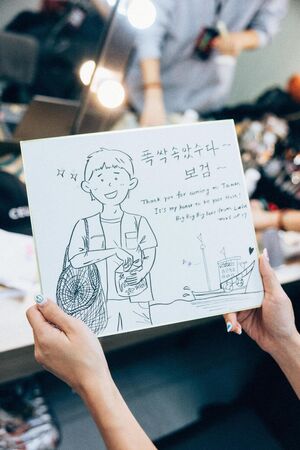 폭싹속았수다~
보검~
Thank you for coming to Taiwan,
It's my honor to be your host,
Big Big Big love from Luke